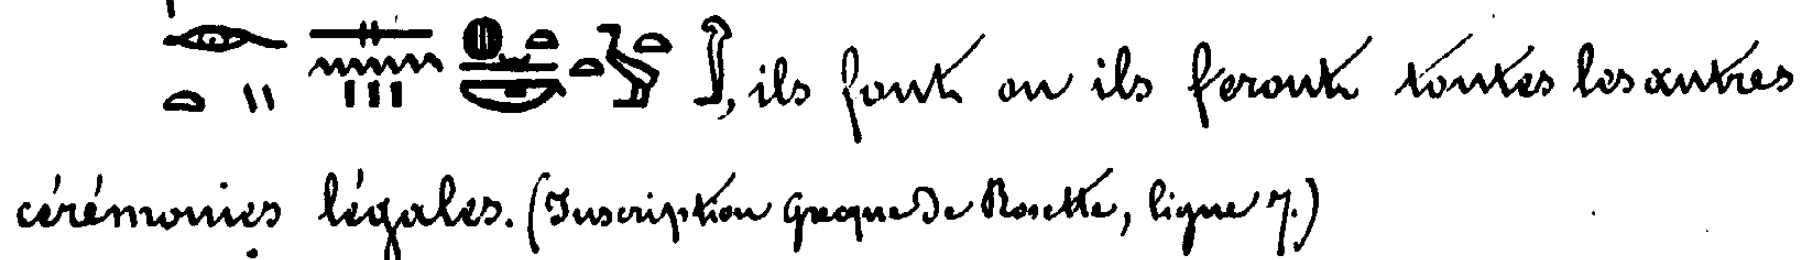 , ils font ou ils feront toutes les autres
cérémonies légales. (Inscription Grecque de Rosette, ligne 7.)